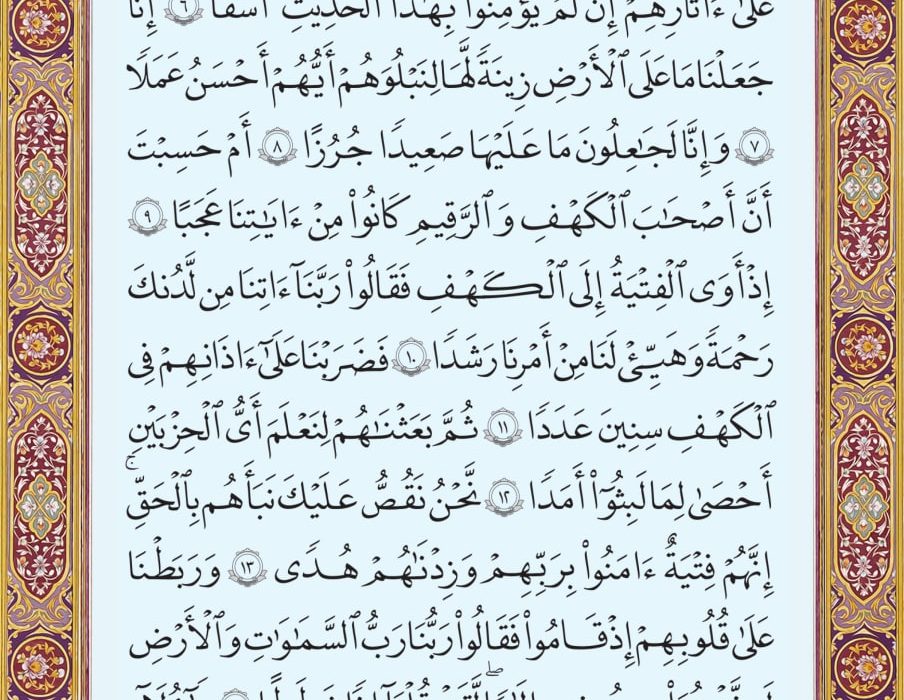 عَلَىٰٓ ءَاثَٰرِهِمۡ إِن لَّمۡ يُؤۡمِنُواْ بِهَٰذَا ٱلۡحَدِيثِ أَسَفًا ٦ إِنَّا
جَعَلۡنَا مَا عَلَى ٱلۡأَرۡضِ زِينَةٗ لَّهَا لِنَبۡلُوَهُمۡ أَيُّهُمۡ أَحۡسَنُ عَمَلٗا
٧ وَإِنَّا لَجَٰعِلُونَ مَا عَلَيۡهَا صَعِيدٗا جُرُزًا ٨ أَمۡ حَسِبۡتَ
أَنَّ أَصۡحَٰبَ ٱلۡكَهۡفِ وَٱلرَّقِيمِ كَانُواْ مِنۡ ءَايَٰتِنَا عَجَبًا ٩
إِذۡ أَوَى ٱلۡفِتۡيَةُ إِلَى ٱلۡكَهۡفِ فَقَالُواْ رَبَّنَآ ءَاتِنَا مِن لَّدُنكَ
رَحۡمَةٗ وَهَيِّئۡ لَنَا مِنۡ أَمۡرِنَا رَشَدٗا ١٠ فَضَرَبۡنَا عَلَىٰٓ ءَاذَانِهِمۡ فِي
ٱلۡكَهۡفِ سِنِينَ عَدَدٗا ١١ ثُمَّ بَعَثۡنَٰهُمۡ لِنَعۡلَمَ أَيُّ ٱلۡحِزۡبَيۡنِ
أَحۡصَىٰ لِمَا لَبِثُوٓاْ أَمَدٗا ١٢ نَّحۡنُ نَقُصُّ عَلَيۡكَ نَبَأَهُم بِٱلۡحَقِّۚ
إِنَّهُمۡ فِتۡيَةٌ ءَامَنُواْ بِرَبِّهِمۡ وَزِدۡنَٰهُمۡ هُدٗى ١٣ وَرَبَطۡنَا
عَلَىٰ قُلُوبِهِمۡ إِذۡ قَامُواْ فَقَالُواْ رَبُّنَا رَبُّ ٱلسَّمَٰوَٰتِ وَٱلۡأَرۡضِ